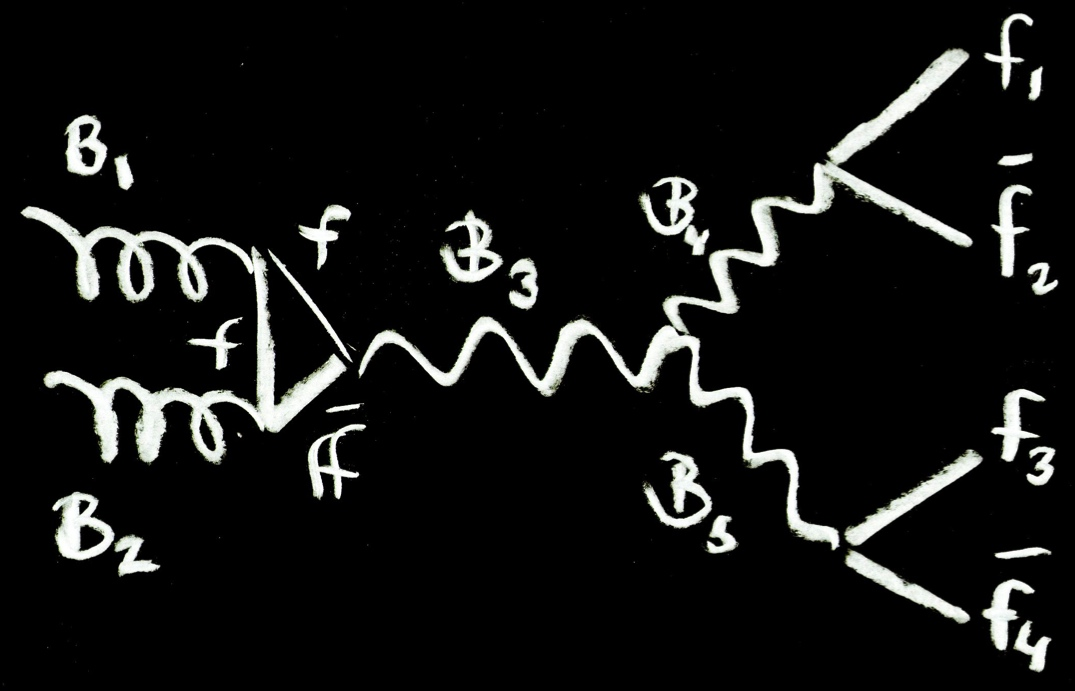 B₁
f
B₃
f
B₂
f̄
B₄
B₅
f₁
f̄₂
f₃
f̄₄